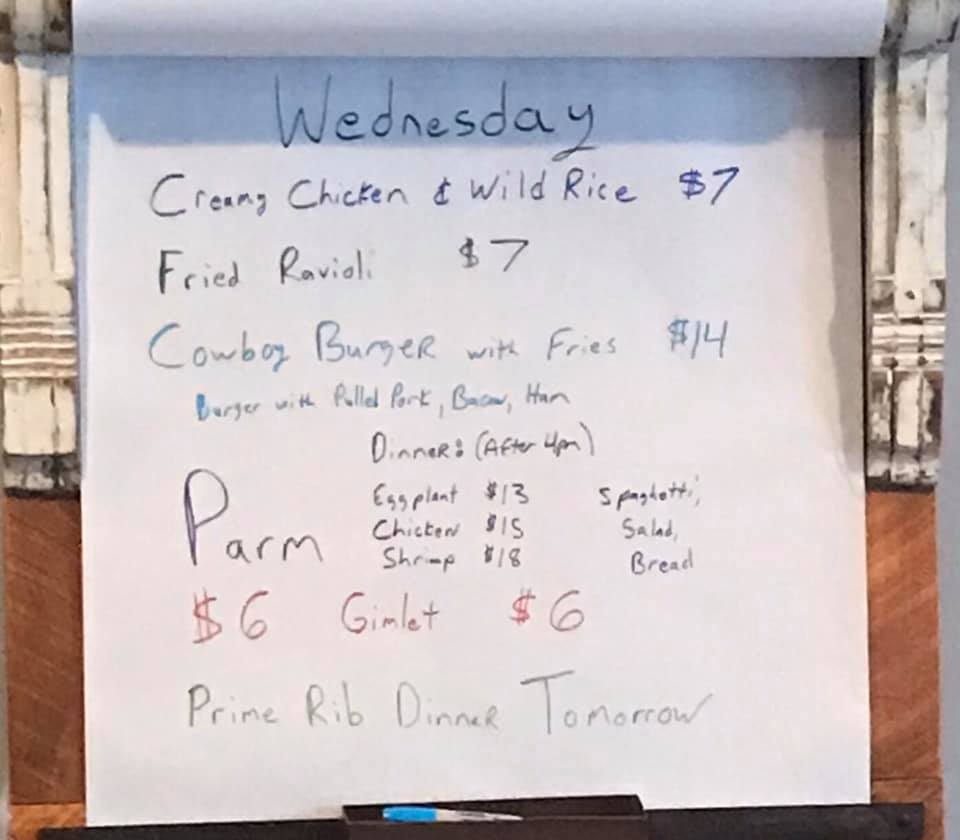 Wednesday
Creamy Chicken & Wild Rice $7
Fried Ravioli $7
Cowboy Burger with Fries $14
Burger with Pulled Pork, Bacon, Ham
Dinner: (After 4pm)
Parm
Eggplant $13
Chicken $15
Shrimp $18
Spaghetti,
Salad,
Bread
$6 Gimlet $6
Prime Rib Dinner Tomorrow